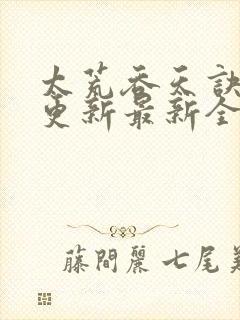 太荒吞天訣
更新最新全
藤間麗 七尾美